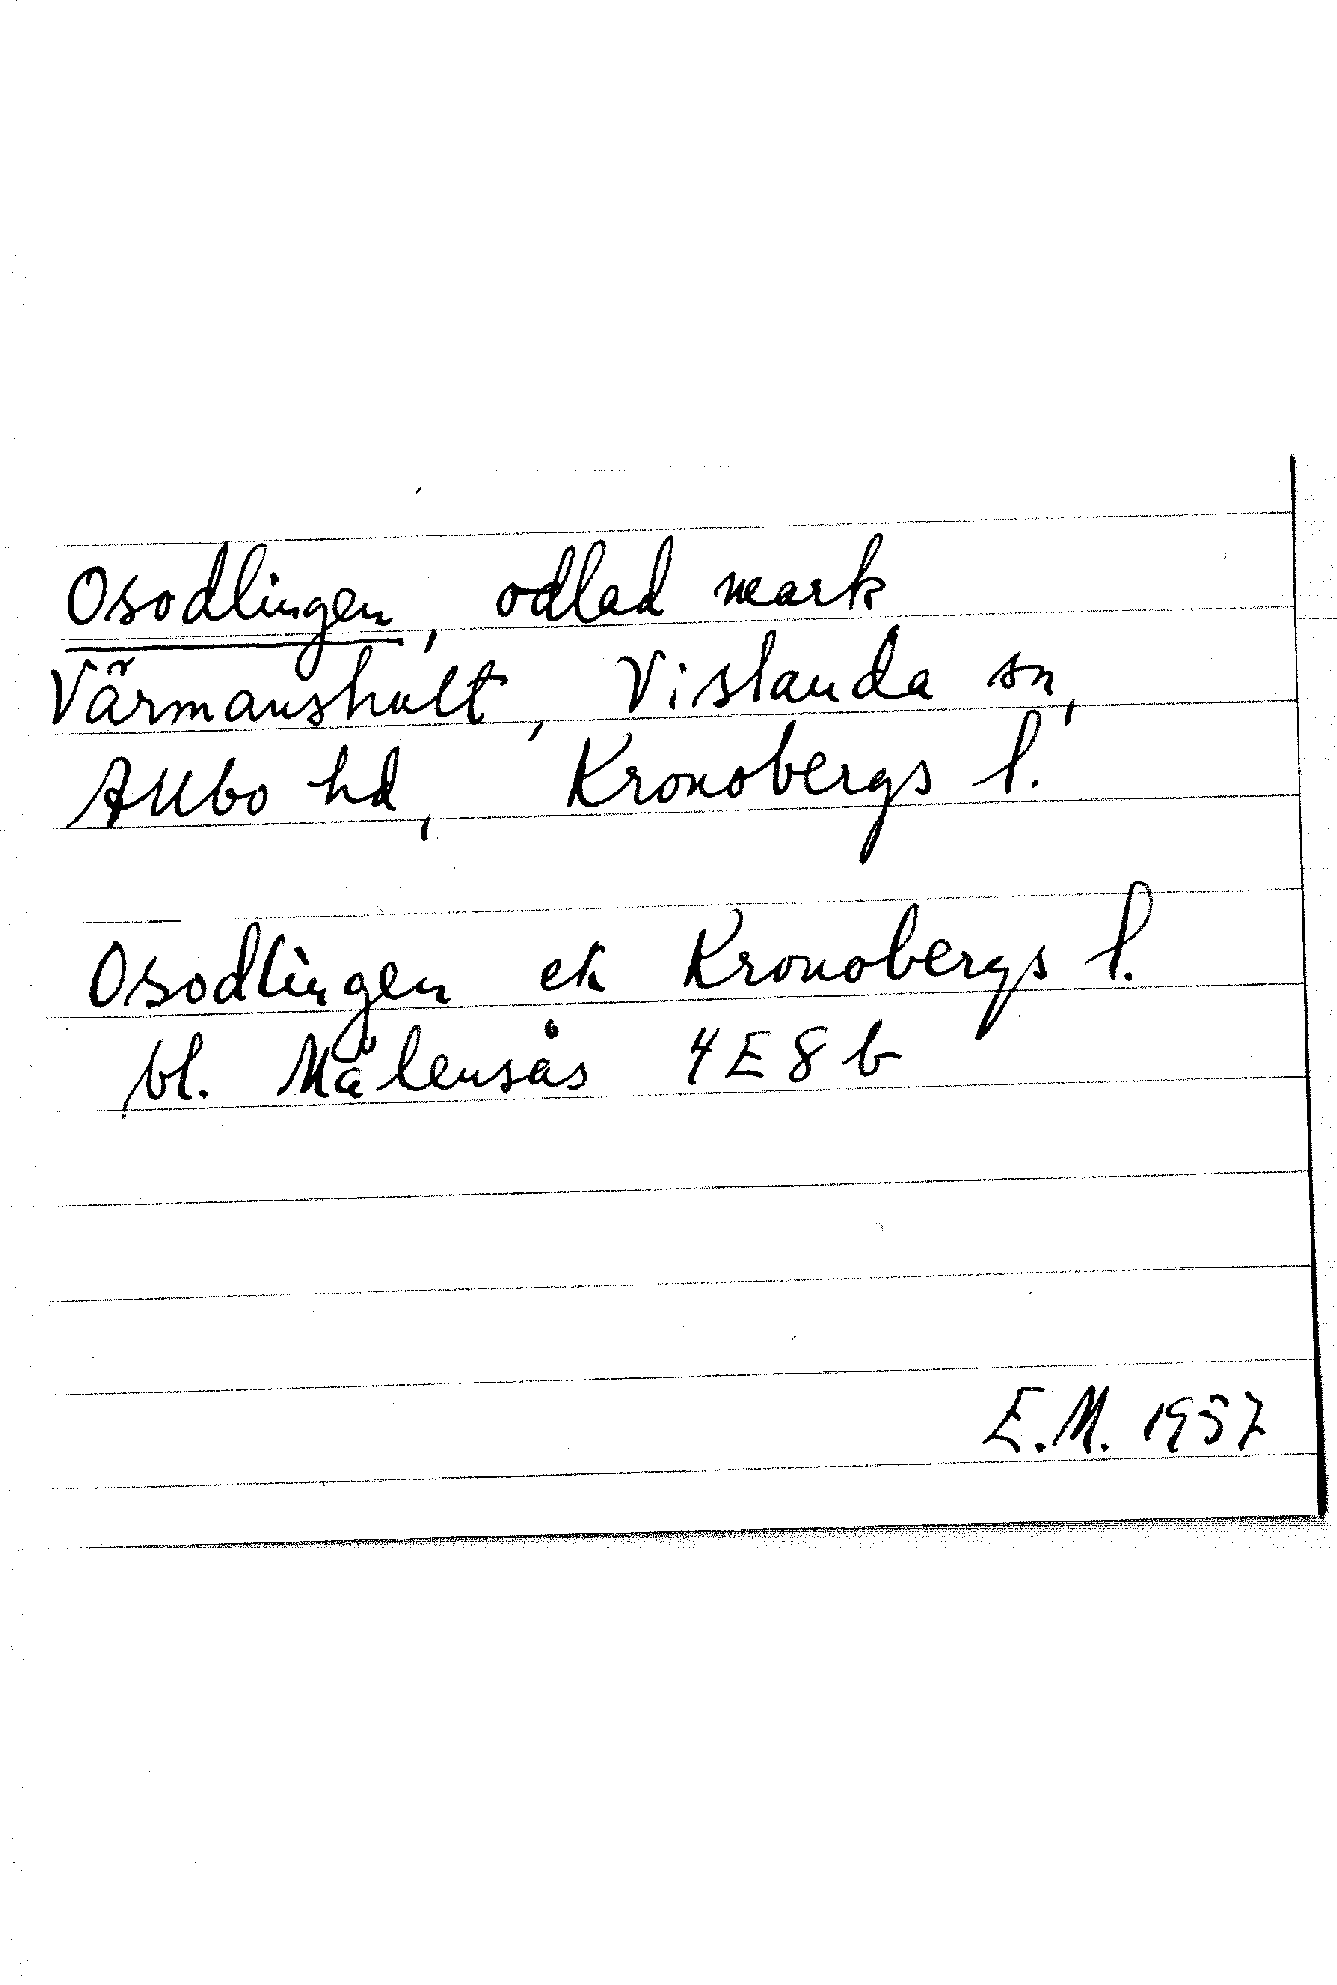 Osodlingen, odlad mark
Värmanshult, Vislanda sn,
Allbo hd, Kronobergs l.
Osodlingen ek Kronobergs l.
bl. Målensås 4E8b
E.M. 1957